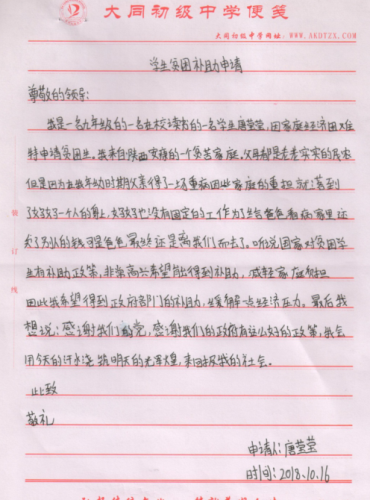 大同初级中学便笺
大同初级中学网站: WWW.AKDTZX.COM
学生贫困补助申请
尊敬的领导:
我是一名九年级的一名在校读书的一名学生唐莹莹,因家庭经济困难
特申请贫困生。我来自陕西安康的一个贫苦家庭。父母都是老老实实的农民
但是因为在我年幼时期父亲得了一场重病因此家庭的重担就落到
了妈妈一个人的身上,妈妈也没有固定的工作为了给爸爸看病家里还
欠了别人的钱可是爸爸最终还是离我们而去了。听说国家对贫困学
生有补助政策,非常高兴希望能得到补助,减轻家庭负担
因此我希望得到政府部门的补助,缓解一点经济压力。最后我
想说:感谢我们的党,感谢我们的政府有这么好的政策,我会
用今天的汗水浇筑明天的光辉煌,来回报我的社会。
此致
敬礼
申请人:唐莹莹
时间:2018.10.16
装
订
线